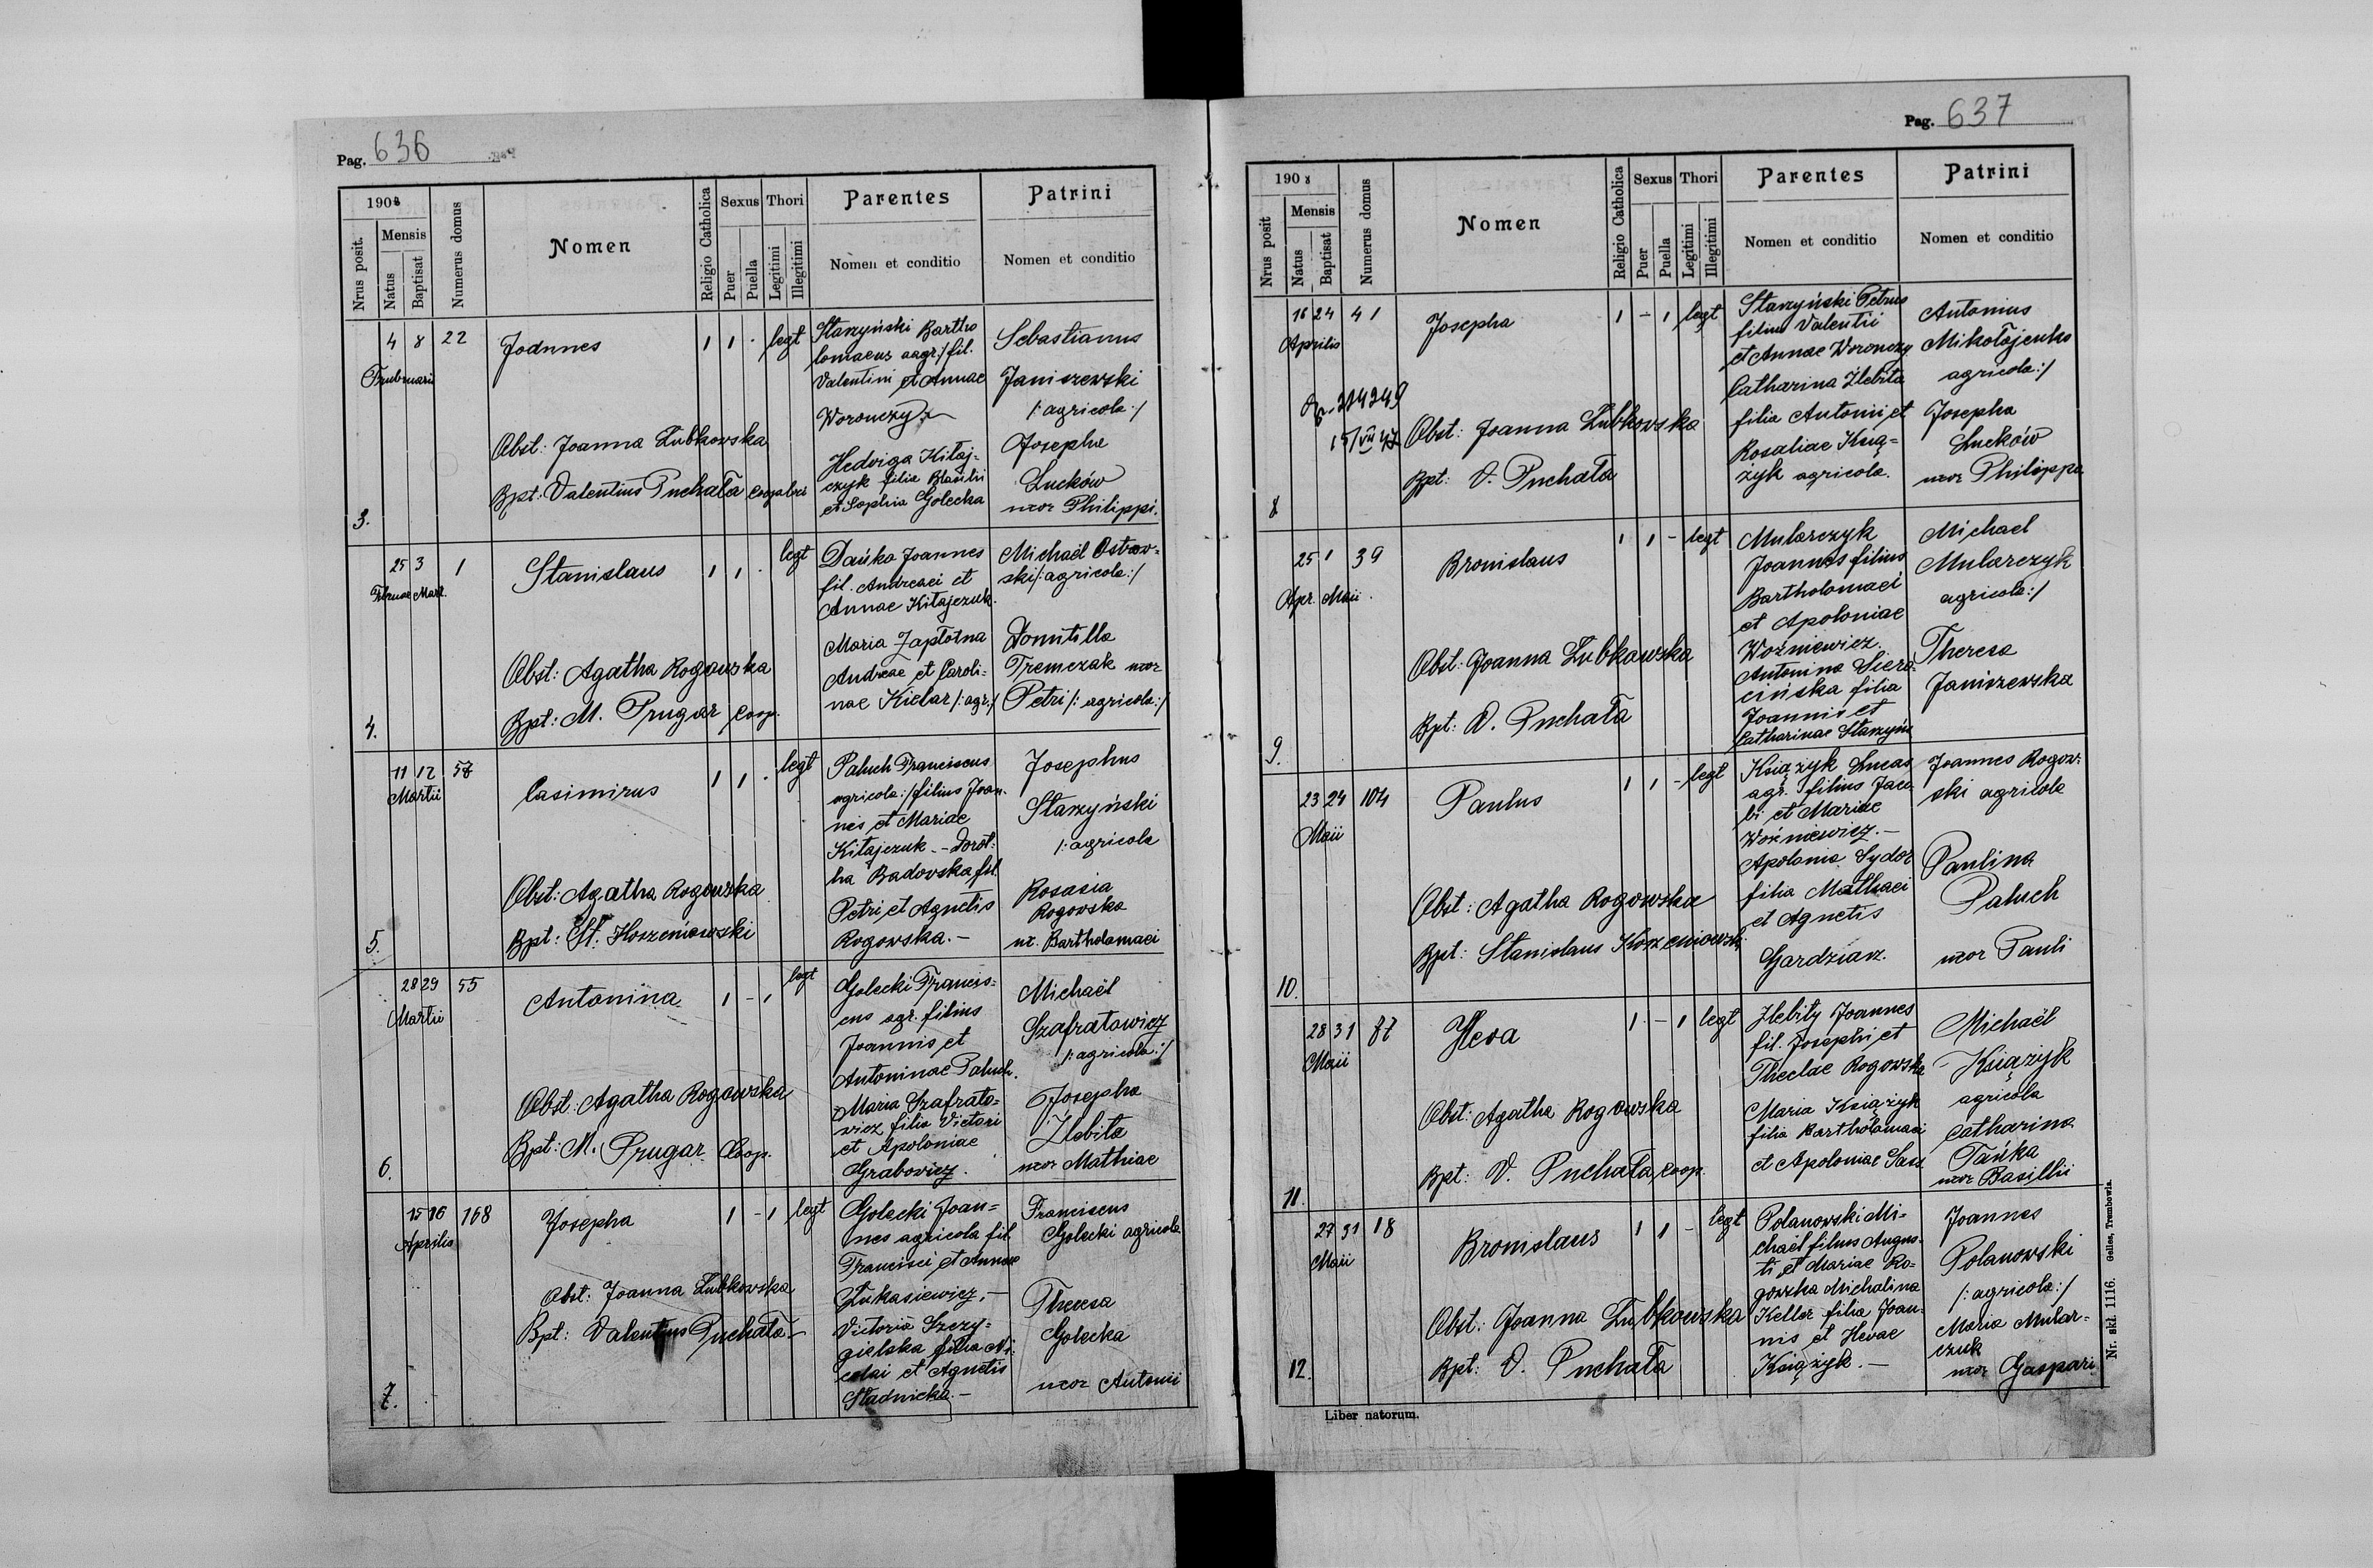 Pag. 636
1908
Nrus posit.
Mensis
Natus
Baptisat
Numerus domus
Nomen
Religio Catholica
Sexus
Puer
Puella
Thori
Legitimi
Illegitimi
Parentes
Nomen et conditio
Patrini
Nomen et conditio
3.
4 8 22
Februarii
Joannes
1 1 · legt
Obst: Joanna Łubkowska
Bpt: Valentius Puchała
Starzyński Bartho
lomaeus agr:/ fil.
Valentini et Annae
Woronczyz
Hedviga Kitaj=
czyk filia Blasii
et Sophia Golecka
Sebastianus
Janiszewski
/: agricola :/
Josepha
Luckow
uxor Philippi.
4.
25 3 1
Februar Mart.
Stanislaus
1 1 · legt
Obst: Agatha Rogowska
Bpt: M. Prugar coop.
Dańko Joannes
fil. Andreaei et
Annae Kitajczuk.
Maria Zapłotna
Andreae et Caroli=
nae Kielar /: agr:/
Michaël Ostrow=
ski /: agricola :/
Domitilla
Tremczak uxor
Petri /: agricola :/
5.
11 12 57
Martii
Casimirus
1 1 · legt
Obst: Agatha Rogowska
Bpt: St. Korzeniowski
Paluch Franciscus
agricola :/ filius Joan.
nis et Mariae
Kitajczuk. - Dorot:
ha Badovska fil.
Petri et Agnetis
Rogowska. -
Josephus
Starzyński
/: agricola
Rosasia
Rogowska
ux. Bartholamaei
6.
28 29 55
Martii
Antonina
1 - 1 legt
Obst: Agatha Rogowska
Bpt: M. Prugar Coop.
Golecki Francis=
cus agr. filius
Joannis et
Antoninae Paluch.
Maria Szafrato=
wicz filia Victori
et Apoloniae
Grabowicz.
Michaël
Szafratowicz
/: agricola :/
Josepha
Zlebita
uxor Mathiae
7.
15 16 168
Aprilis
Josepha
1 - 1 legt
Obst: Joanna Łubkowska
Bpt: Valentius Puchała -
Golecki Joan=
nes agricola fil
Francisci et Annae
Łukasiewicz. -
Victoria Szczy=
gielska filia Ni:
colai et Agnetis
Stadnicka. -
Franciscus
Golecki agricola
Theresa
Golecka
uxor Antonii
Pag. 637
1908
Nrus posit
Mensis
Natus
Baptisat
Numerus domus
Nomen
Religio Catholica
Sexus
Puer
Puella
Thori
Legitimi
Illegitimi
Parentes
Nomen et conditio
Patrini
Nomen et conditio
8
16 24 41
Aprilis
Josepha
1 - 1 legt
15/VII 47
Obst: Joanna Łubkowska
Bpt: V. Puchała
Starzyński Petrus
filius Valentii
et Annae Woronczy
Catharina Zlebita
filia Antonii et
Rosaliae Ksią=
żyk agricola.
Antonius
Mikołajenko
agricola :/
Josepha
Luckow
uxor Philippa
9.
25 1 39
Apr. Maii.
Bronislaus
1 1 - legt
Obst: Joanna Łubkowska
Bpt: V. Puchała
Mularczyk
Joannes filius
Bartholomaei
et Apoloniae
Woźniewicz.
Antonina Siera
cińska filia
Joannis et
Catharinae Starzyńs
Michael
Mularczyk
agricola :/
Theresa
Janiszewska
10.
23 24 104
Maii
Paulus
1 1 - legt
Obst: Agatha Rogowska
Bpt: Stanislaus Korzeniowski
Książyk Lucas
agr. filius Jaco
bi et Mariae
Woźniewicz. -
Apolonia Sydor
filia Mathaei
et Agnetis
Gardziarz.
Joannes Rogow:
ski agricola
Paulina
Paluch
uxor Pauli
11.
28 31 87
Maii
Heva
1 - 1 legt
Obst: Agatha Rogowska
Bpt: V. Puchała coop.
Zlebity Joannes
fil. Josephi et
Theclae Rogowska
Maria Książyk
filia Bartholamaei
et Apoloniae Sass
Michaël
Książyk
agricola
Catharina
Tańka
uxor Basillii
12.
27 31 18
Maii
Bronislaus
1 1 - legt
Obst: Joanna Łubkowska
Bpt: V. Puchała
Polanowski Mi=
chaël filius Augus=
ti et Mariae Ro=
gowska Michalina
Keller filia Joan=
nis et Hevae
Książyk. -
Joannes
Polanowski
/: agricola :/
Maria Mular=
czuk
uxor Gaspari
Liber natorum.
Nr. skł. 1116. Gelles, Trembowla.